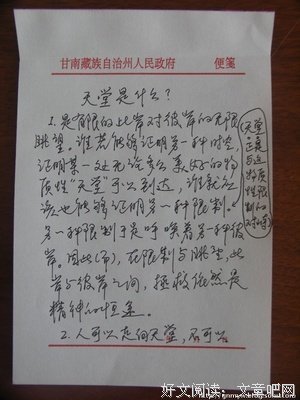 甘南藏族自治州人民政府 便笺
天堂是什么？
1. 是有限的此岸对彼岸的无限
眺望。谁若能够证明另一种时空，
证明某一处无论多么美好的物
质性“天堂”可以到达，谁就应
该也能够证明另一种限制。
另一种限制于是呼唤着另一种彼
岸。因此（而），在限制与眺望、此
岸与彼岸之间，拯救依然是
精神的恒途。
2. 人可以走向天堂，不可以
天堂
正是与这
物质性
限制
的对峙
好文阅读：文章吧网